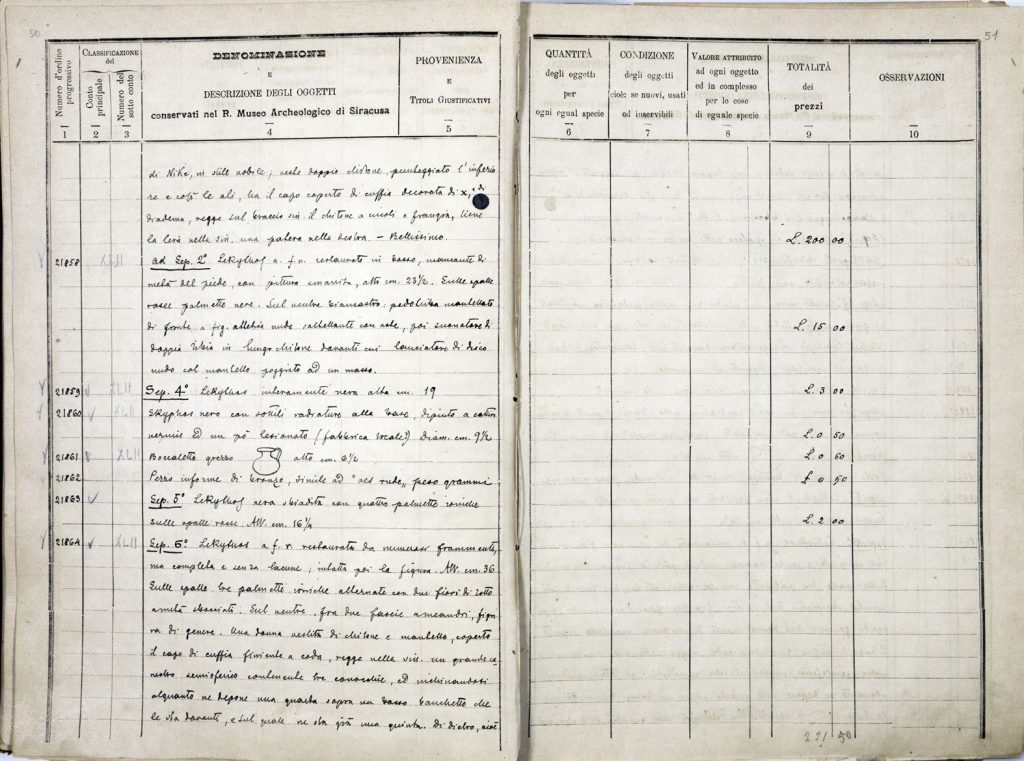 50
Numero d'ordine progressivo
CLASSIFICAZIONE del
Conto principale
Numero del sotto conto
DENOMINAZIONE
E
DESCRIZIONE DEGLI OGGETTI
conservati nel R. Museo Archeologico di Siracusa
PROVENIENZA
E
TITOLI GIUSTIFICATIVI
1 2 3 4 5
di Nike, in stile nobile; veste doppio chitone, punteggiato l'inferio
re e così le ali, ha il capo coperto di cuffia decorata di x, e di
diadema, regge sul braccio sin. il chitone a circoli e frangia, tiene
la lira nella sin. una patera nella destra. — Bellissimo.
21858 XLII ad Sep. 2° Lekythos a f. n. restaurata in basso, mancante di
metà del piede, con pittura smarrita, alta cm. 23½. Sulle spalle
rosse palmette nere. Sul ventre biancastro: pedotriba mantellato
di fronte a fig. atletica nuda saltellante con aste, poi suonatore di
doppia tibia in lungo chitone davanti cui lanciatore di disco
nudo col mantello poggiato ad un masso.
21859 XLII Sep. 4° Lekythos interamente nera alta cm. 19
21860 XLII Skyphos nero con sottili radiature alla base, dipinto a cattiva
vernice ed un pò lesionato (fabbrica locale?) Diam. cm. 9½
21861 XLII Boccaletto grezzo alto cm. 6½
21862 Pezzo informe di bronzo, simile ad "aes rude" peso grammi
21863 Sep. 5° Lekythos nera sbiadita con quattro palmette ioniche
sulle spalle rosse. Alt. cm. 16¼
21864 XLII Sep. 6° Lekythos a f. r. restaurata da numerosi frammenti,
ma completa e senza lacune; intatta poi la figura. Alt. cm. 36
Sulle spalle tre palmette ioniche alternate con due fiori di lotto
a metà sbocciati. Sul ventre, fra due fascie a meandri, figu
ra di genere. Una donna vestita di chitone e mantello, coperto
il capo di cuffia finiente a coda, regge nella sin. un grande ca
nestro semisferico contenente tre conocchie, ed inchinandosi
alquanto ne depone una quarta sopra un basso banchetto che
le sta davanti, e sul quale ne sta già una quinta. Di dietro, cioè
51
QUANTITÀ
degli oggetti
per
ogni egual specie
CONDIZIONE
degli oggetti
cioè: se nuovi, usati
od inservibili
VALORE ATTRIBUITO
ad ogni oggetto
ed in complesso
per le cose
di eguale specie
TOTALITÀ
dei
prezzi
OSSERVAZIONI
6 7 8 9 10
L. 200 00
L. 15 00
L. 3 00
L. 0 50
L. 0 50
L. 0 50
L. 2 00
221 50